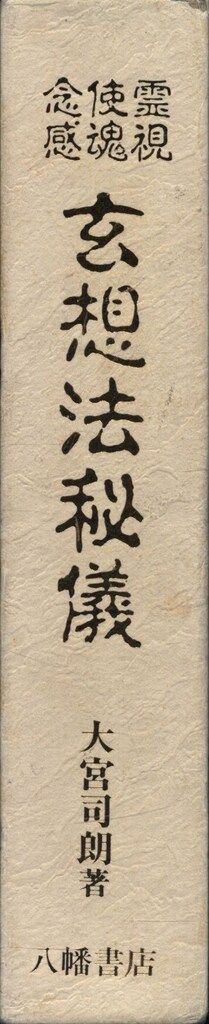 霊視
使魂
念感
玄想法秘儀
大宮司朗著
八幡書店